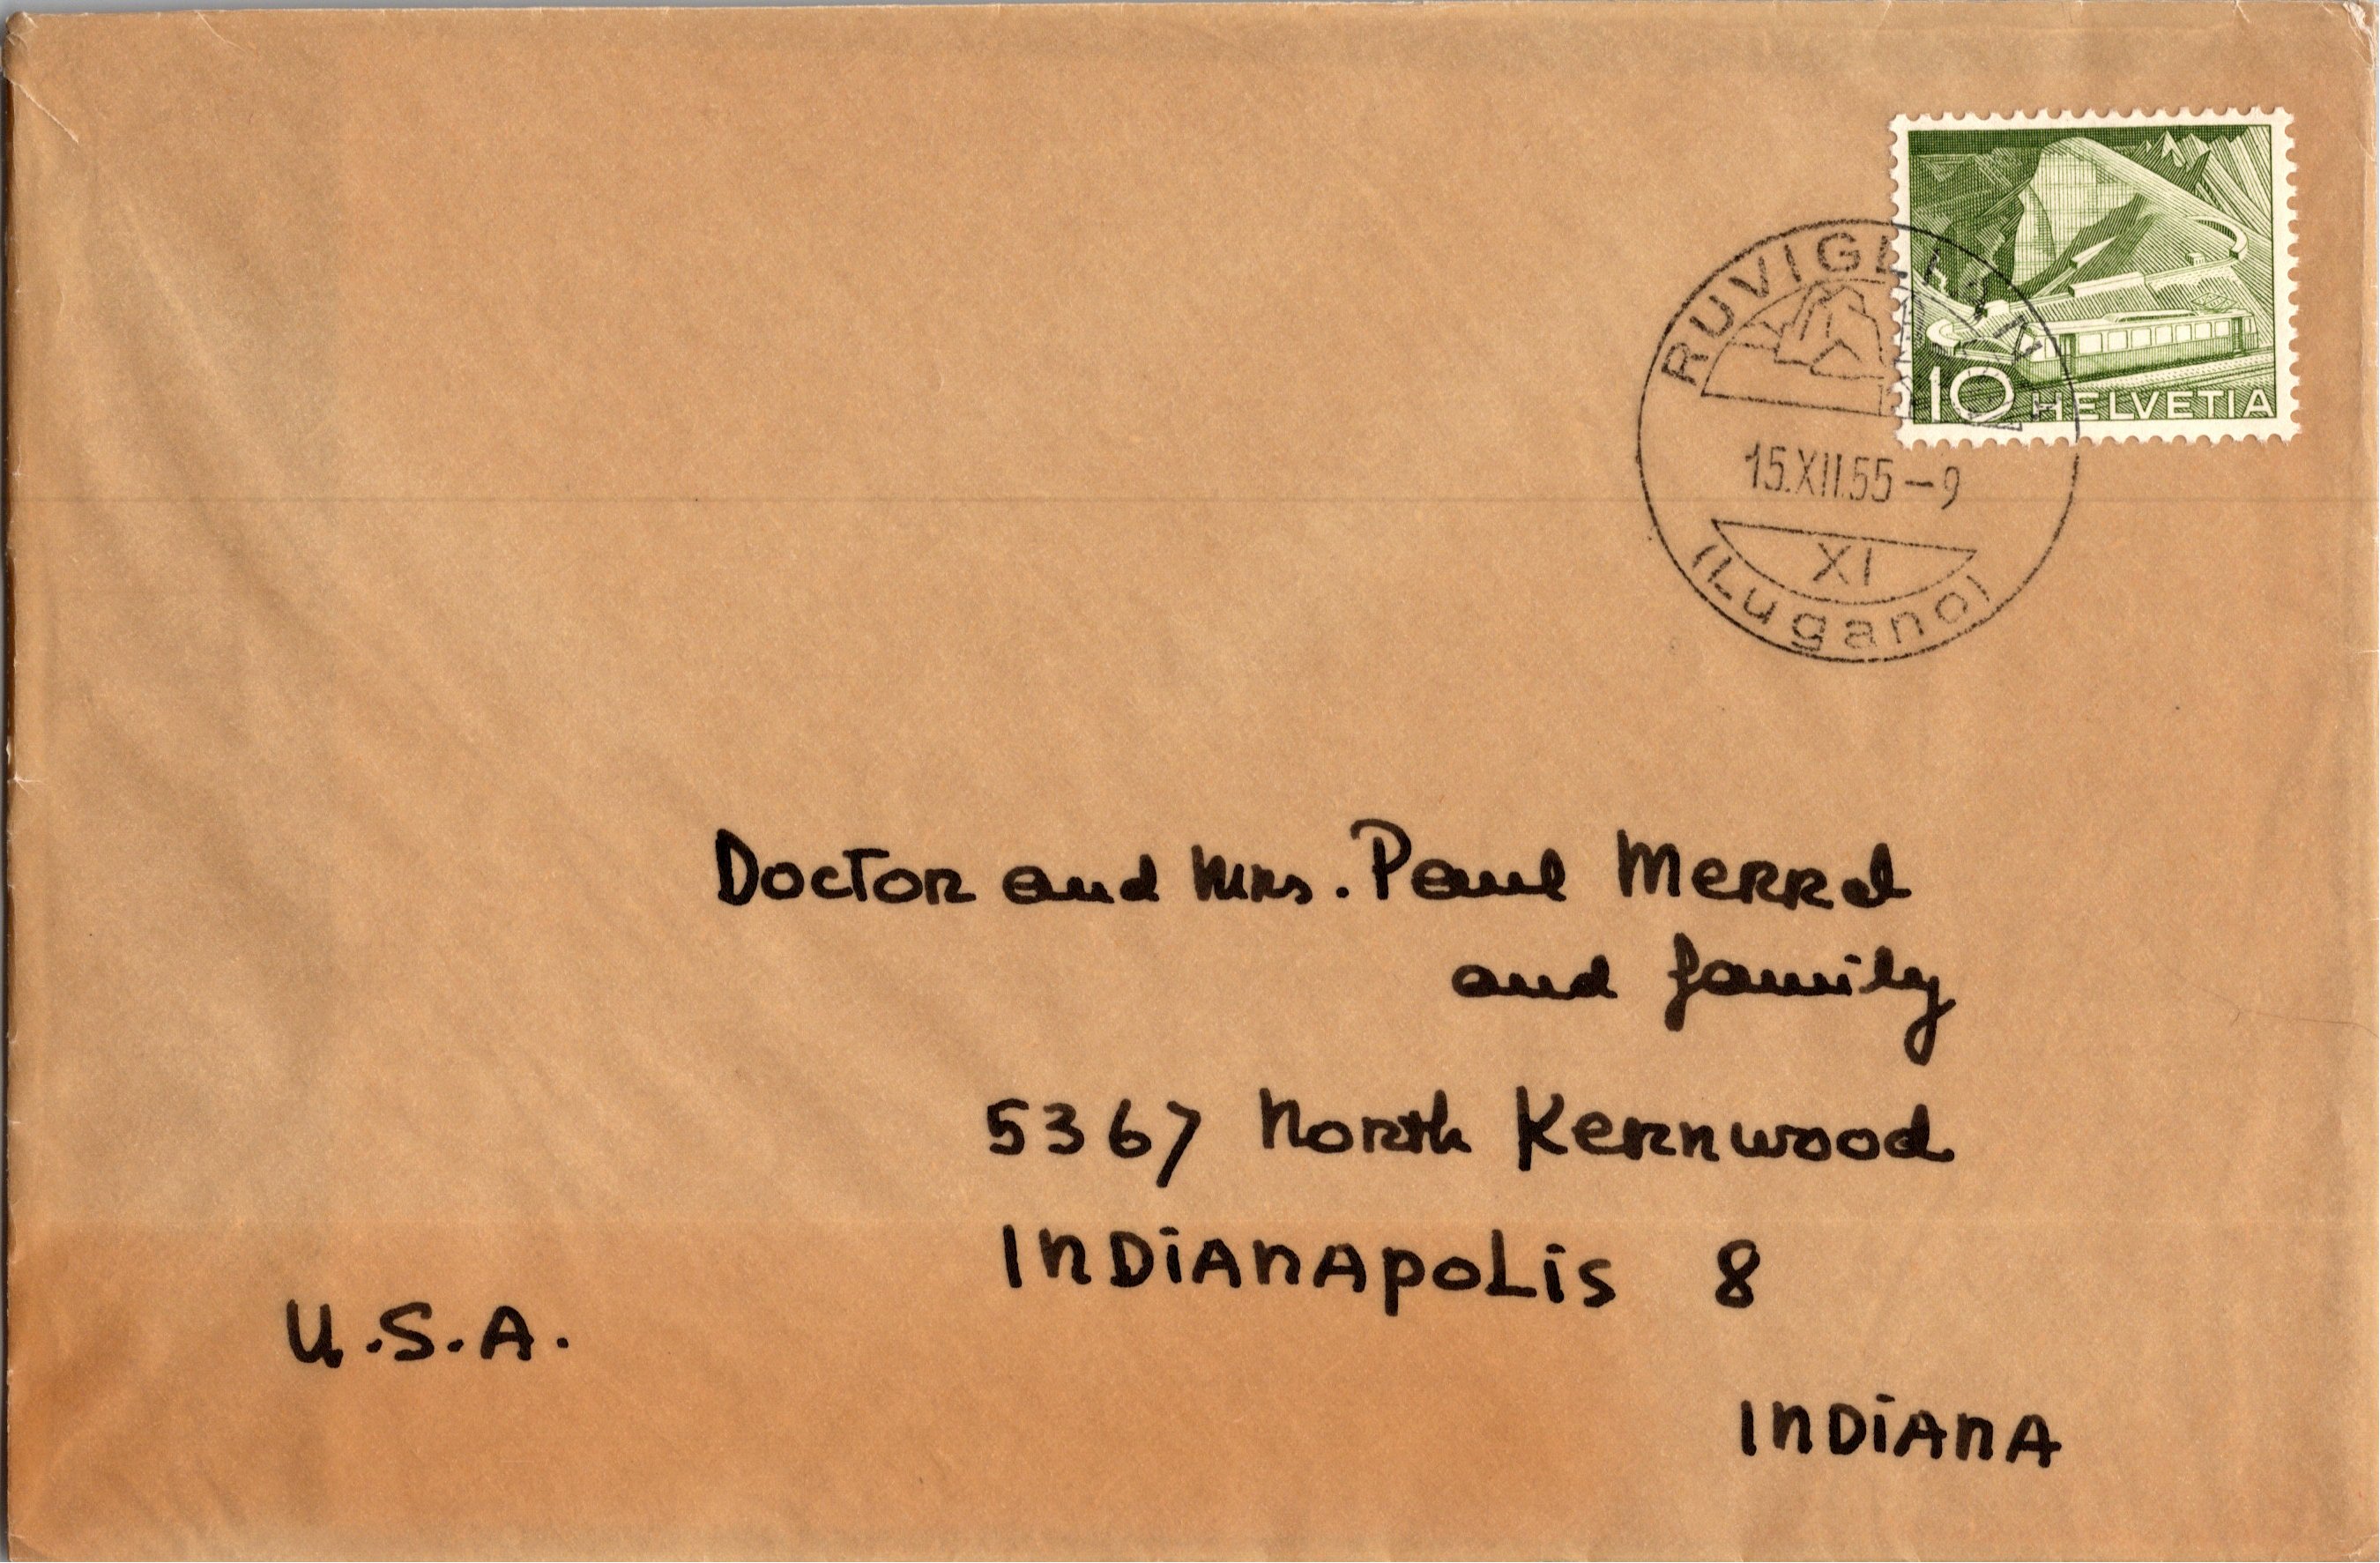 10 HELVETIA
RUVIGLIANA
15.XII.55-9
XI
(Lugano)
Doctor and Mrs. Paul
and family
5367 North Kernwood
INDIANAPOLIS 8
U.S.A.
INDIANA